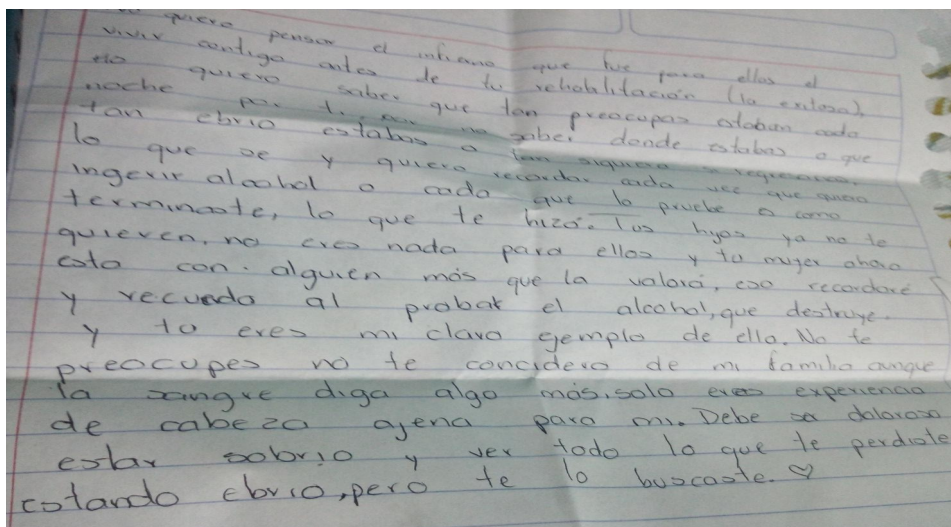 quiero pensar el infierno que fue para ellos el
vivir contigo antes de tu rehabilitación (la exitosa),
No quiero saber que tan preocupas estaban cada
noche por ti, por no saber donde estabas o que
tan ebrio estabas o tan siquiera
lo que se y quiero recordar cada vez que quiera
ingerir alcohol o cada que lo pruebe o como
terminaste, lo que te hizo. Tus hijos ya no te
quieren, no eres nada para ellos y tu mujer ahora
esta con alguien más que la valora, eso recordare
y recuerdo al probar el alcohol, que destruye.
y to eres mi claro ejemplo de ello. No te
preocupes no te concidero de mi familia aunque
la sangre diga algo más, solo eres experiencia
de cabeza ajena para mi. Debe ser doloroso
estar sobrio y ver todo lo que te perdiste
estando ebrio, pero te lo buscaste. ♡